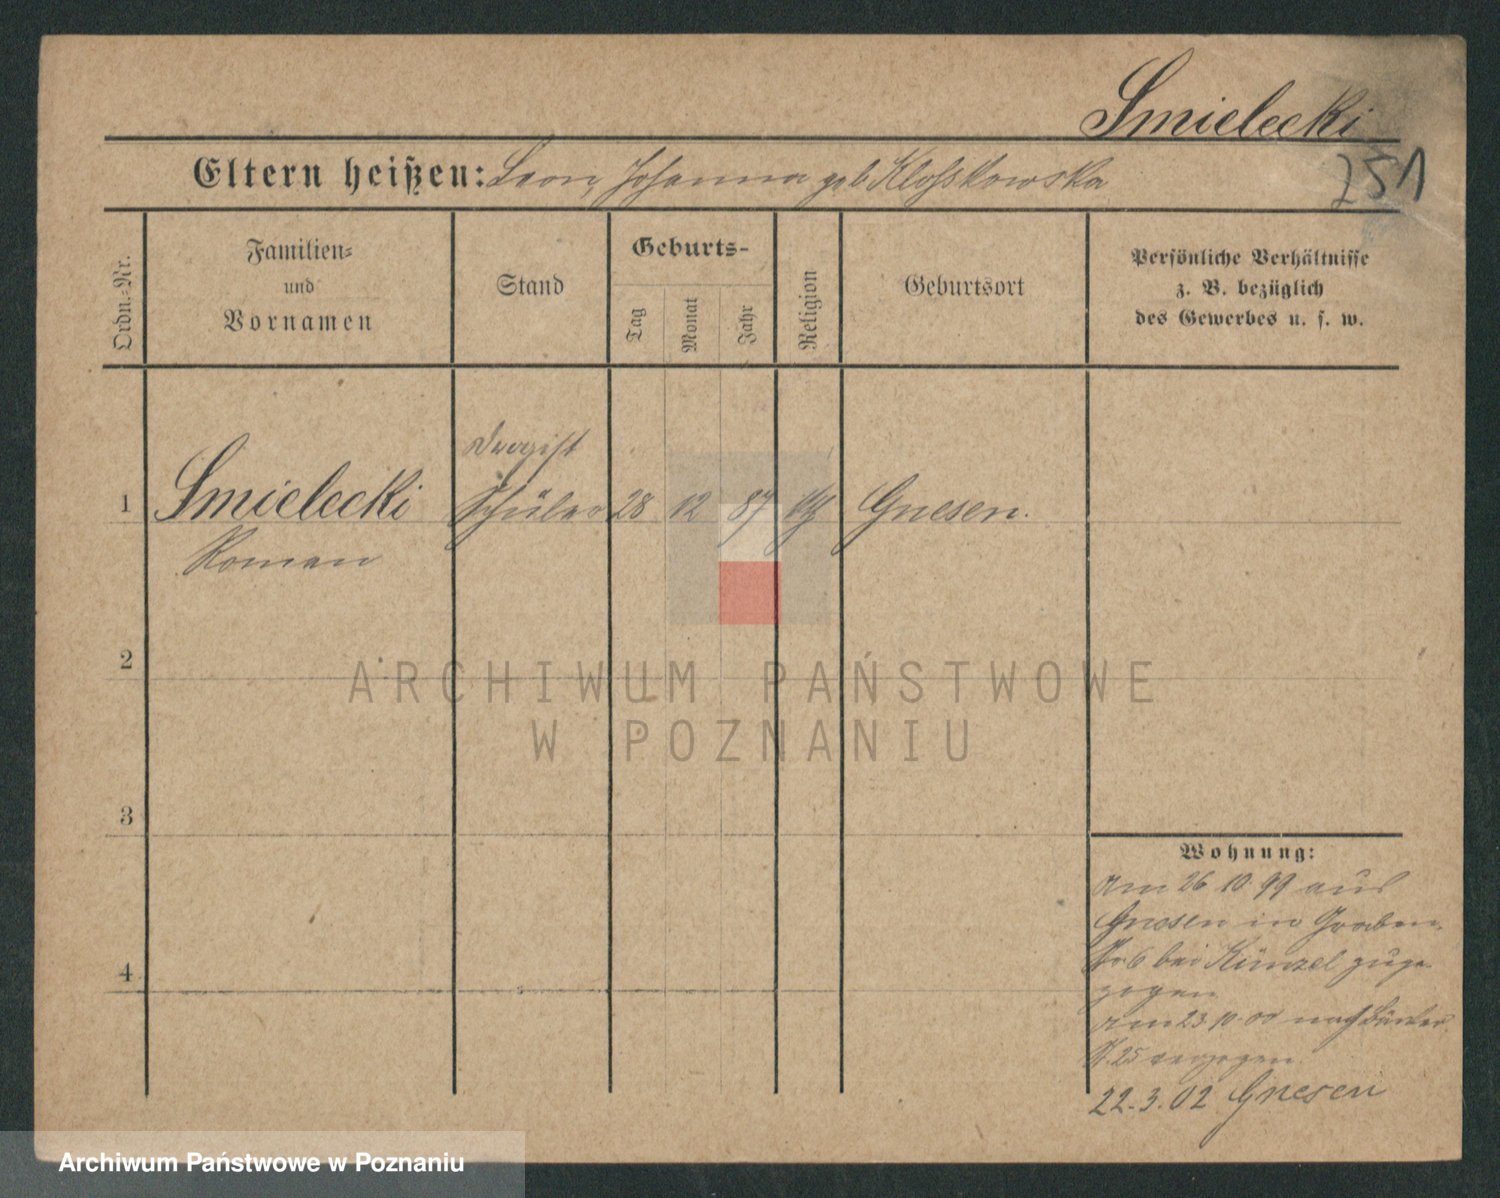 Smielecki
Eltern heißen: Leon, Johanna geb Klosskowska
251
Ordn.-Nr.
Familien-
und
Vornamen
Stand
Geburts-
Tag
Monat
Jahr
Religion
Geburtsort
Persönliche Verhältnisse
z. B. bezüglich
des Gewerbes u. s. w.
Drogist
1 Smielecki Schüler 28 12 87 Gnesen.
Roman
2
ARCHIWUM PAŃSTWOWE
W POZNANIU
3
4
Wohnung:
Am 26 10. 99 aus
Gnesen in Graben-
No 6 bei Künzel zuge-
zogen
am 23 10. 00 nach
25 verzogen.
22. 3. 02 Gnesen
Archiwum Państwowe w Poznaniu